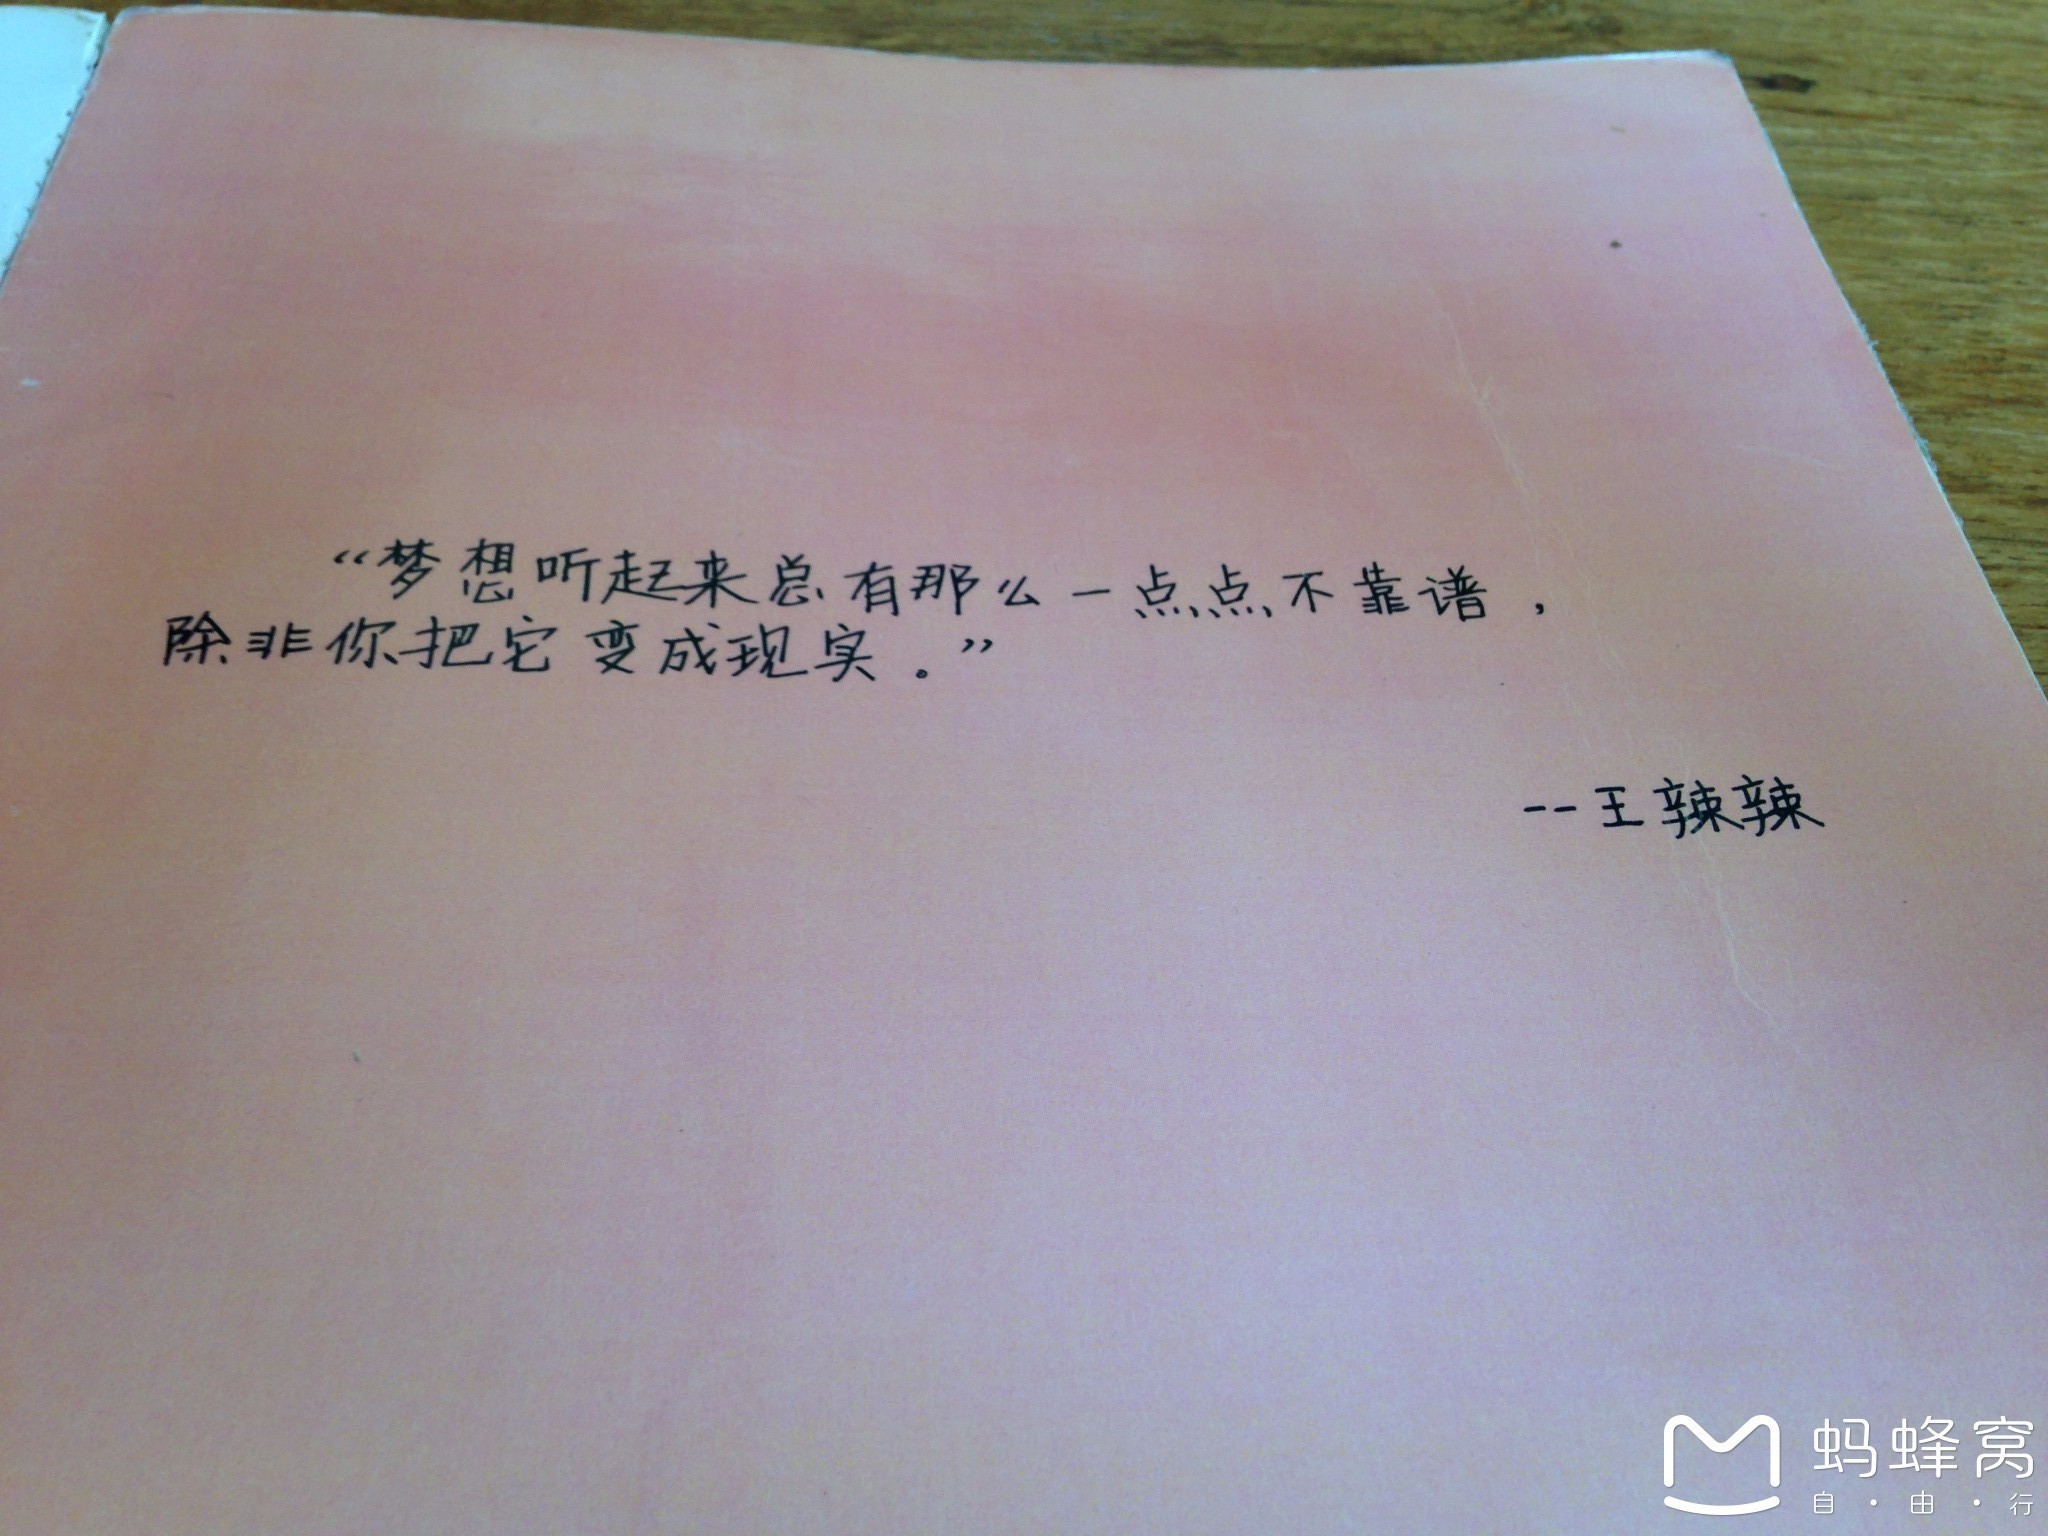 “梦想听起来总有那么一点点不靠谱，
除非你把它变成现实。”
--王辣辣
蚂蜂窝
自·由·行